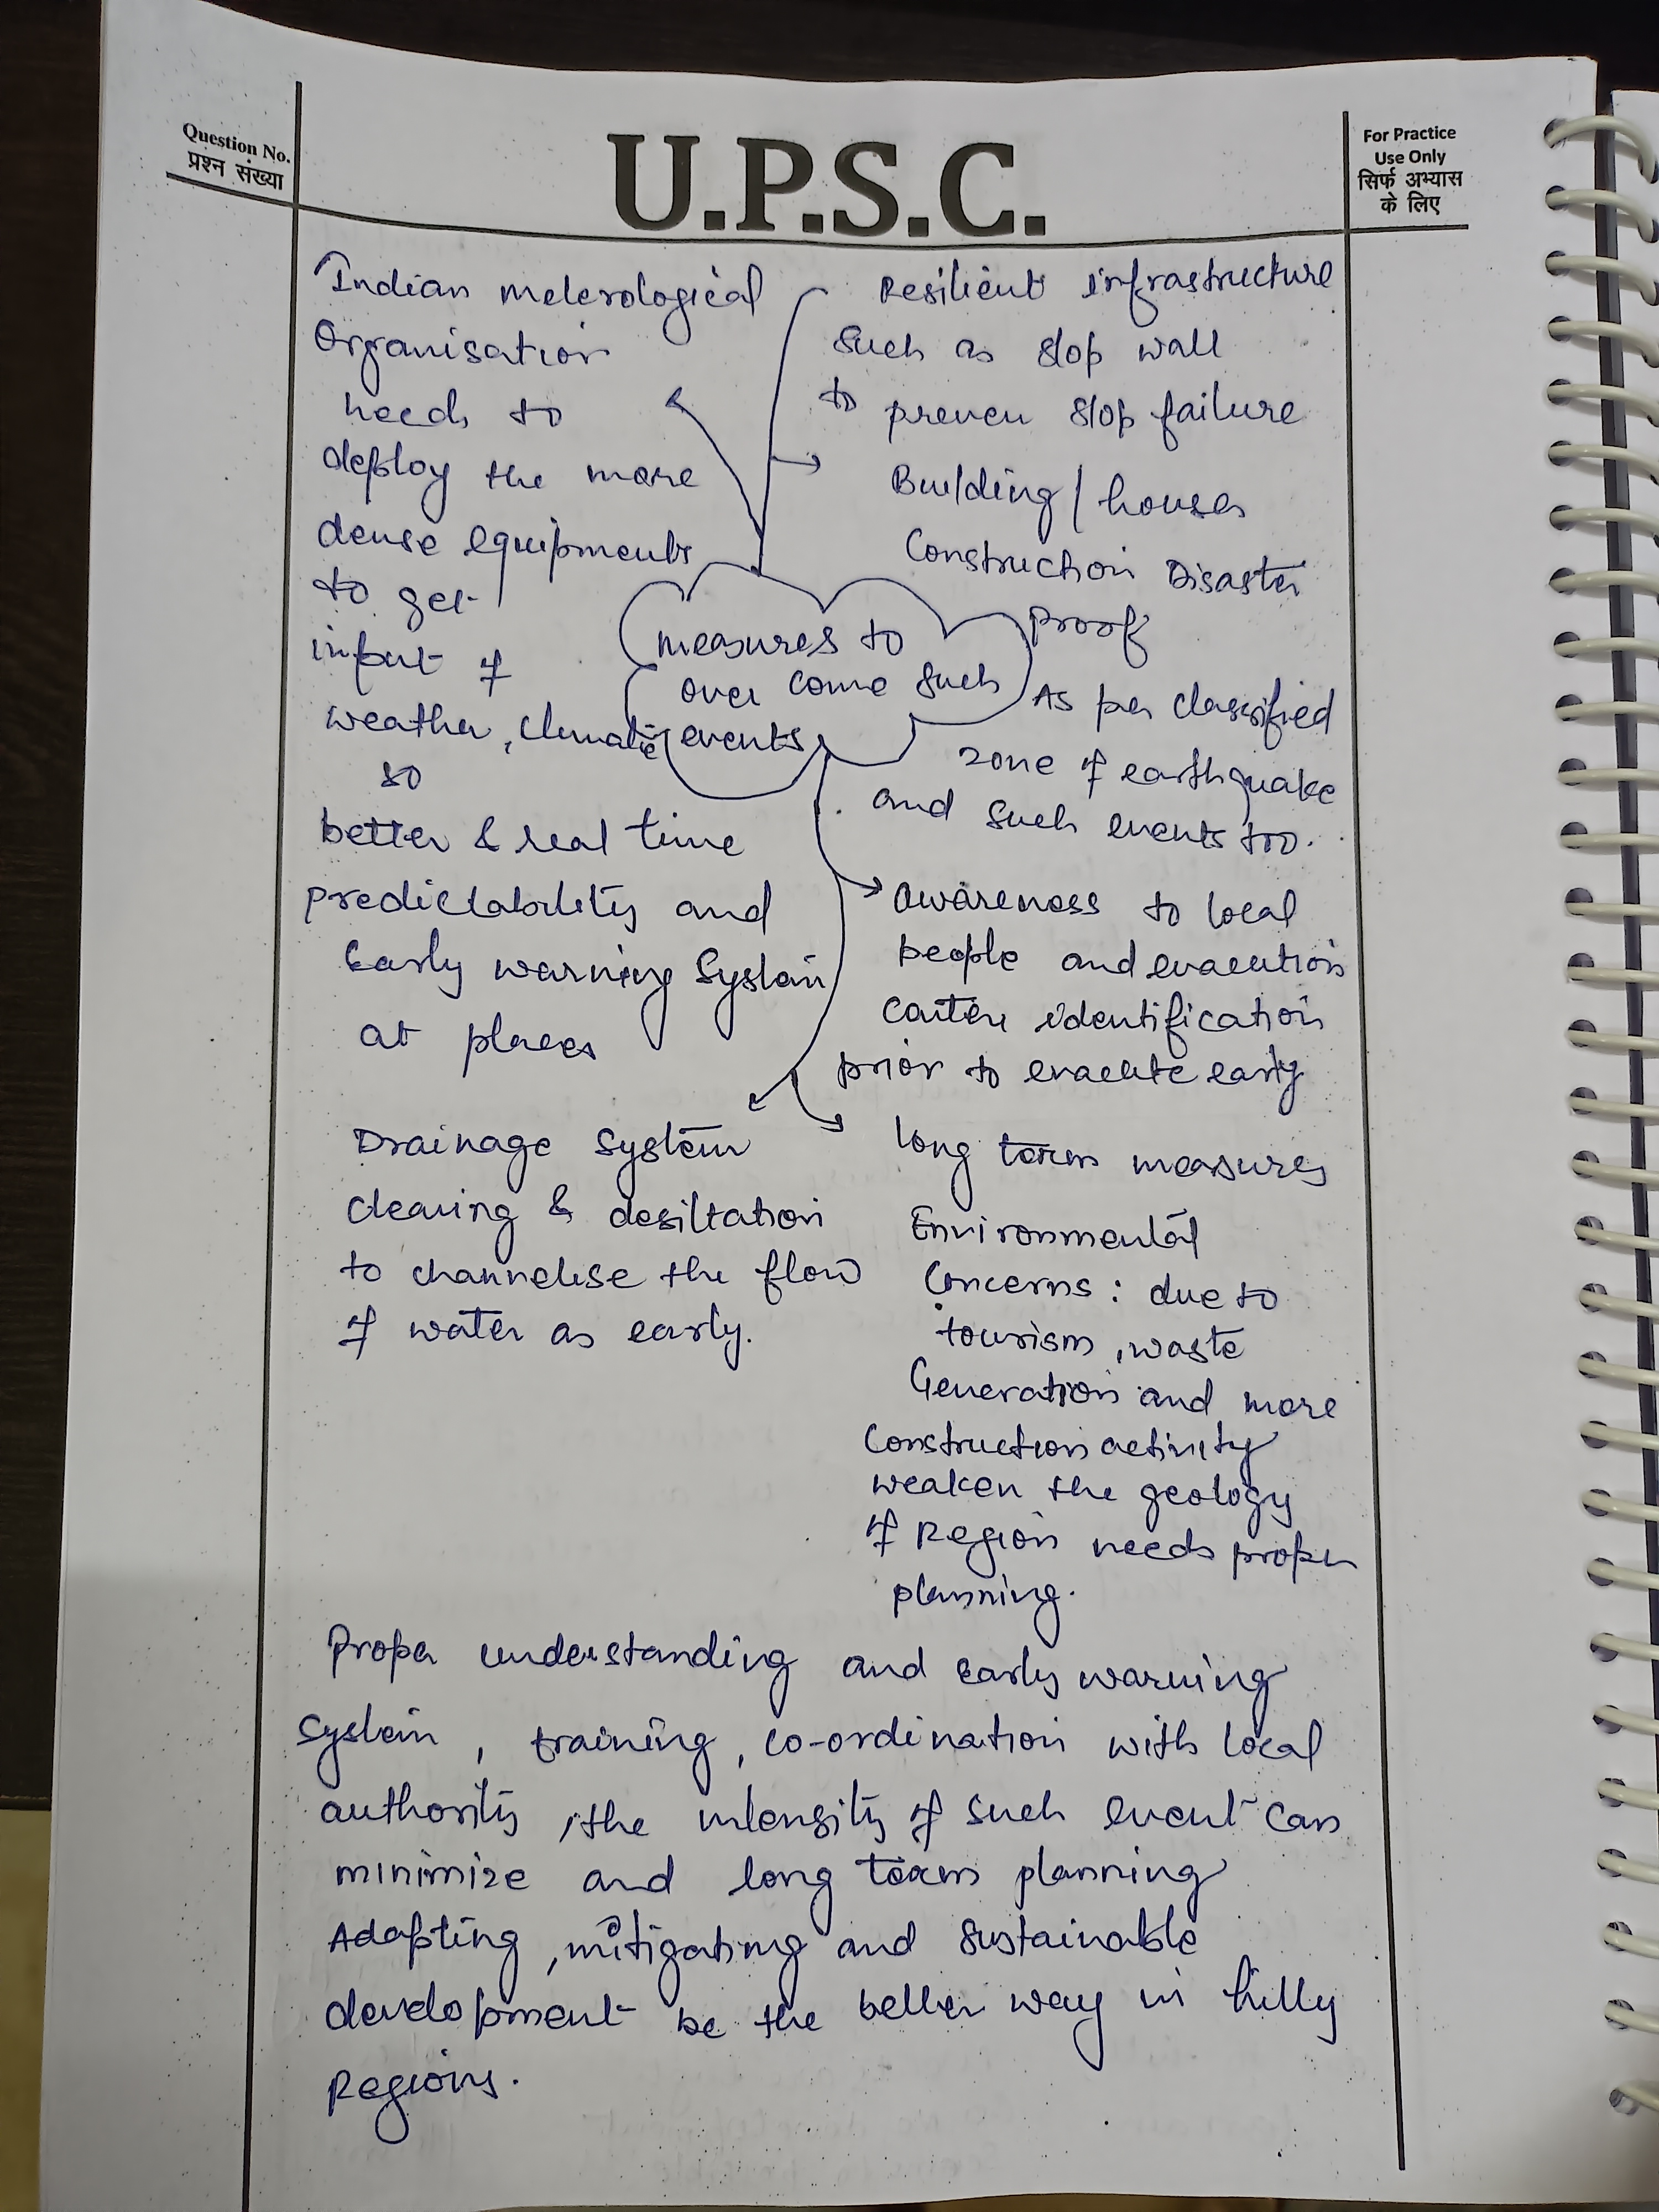 Question No.
प्रश्न संख्या
U.P.S.C.
For Practice
Use Only
सिर्फ अभ्यास
के लिए
Indian meterological
Organisation
needs to
deploy the more
dense equipments
to get
input of
weather, climatic
so
better & real time
predictability and
Early warning System
at places
Resilient infrastructure
such as slop wall
to preven slop failure
Building / houses
Construction Disaster
proof
As per classified
zone of earthquake
and such events too.
measures to
over come such
events
awareness to local
people and evacution
identification
prior to evacute early
Drainage system
clearing & desiltation
to channelise the flow
of water as early.
long term measures
Environmental
Concerns : due to
tourism, waste
Generation and more
construction activity
weaken the geology
of Region needs proper
planning.
Proper understanding and early warning
system, training, co-ordination with local
authority, the intensity of such event can
minimize and long term planning
Adapting, mitigating and sustainable
development be the better way in hilly
Regions.